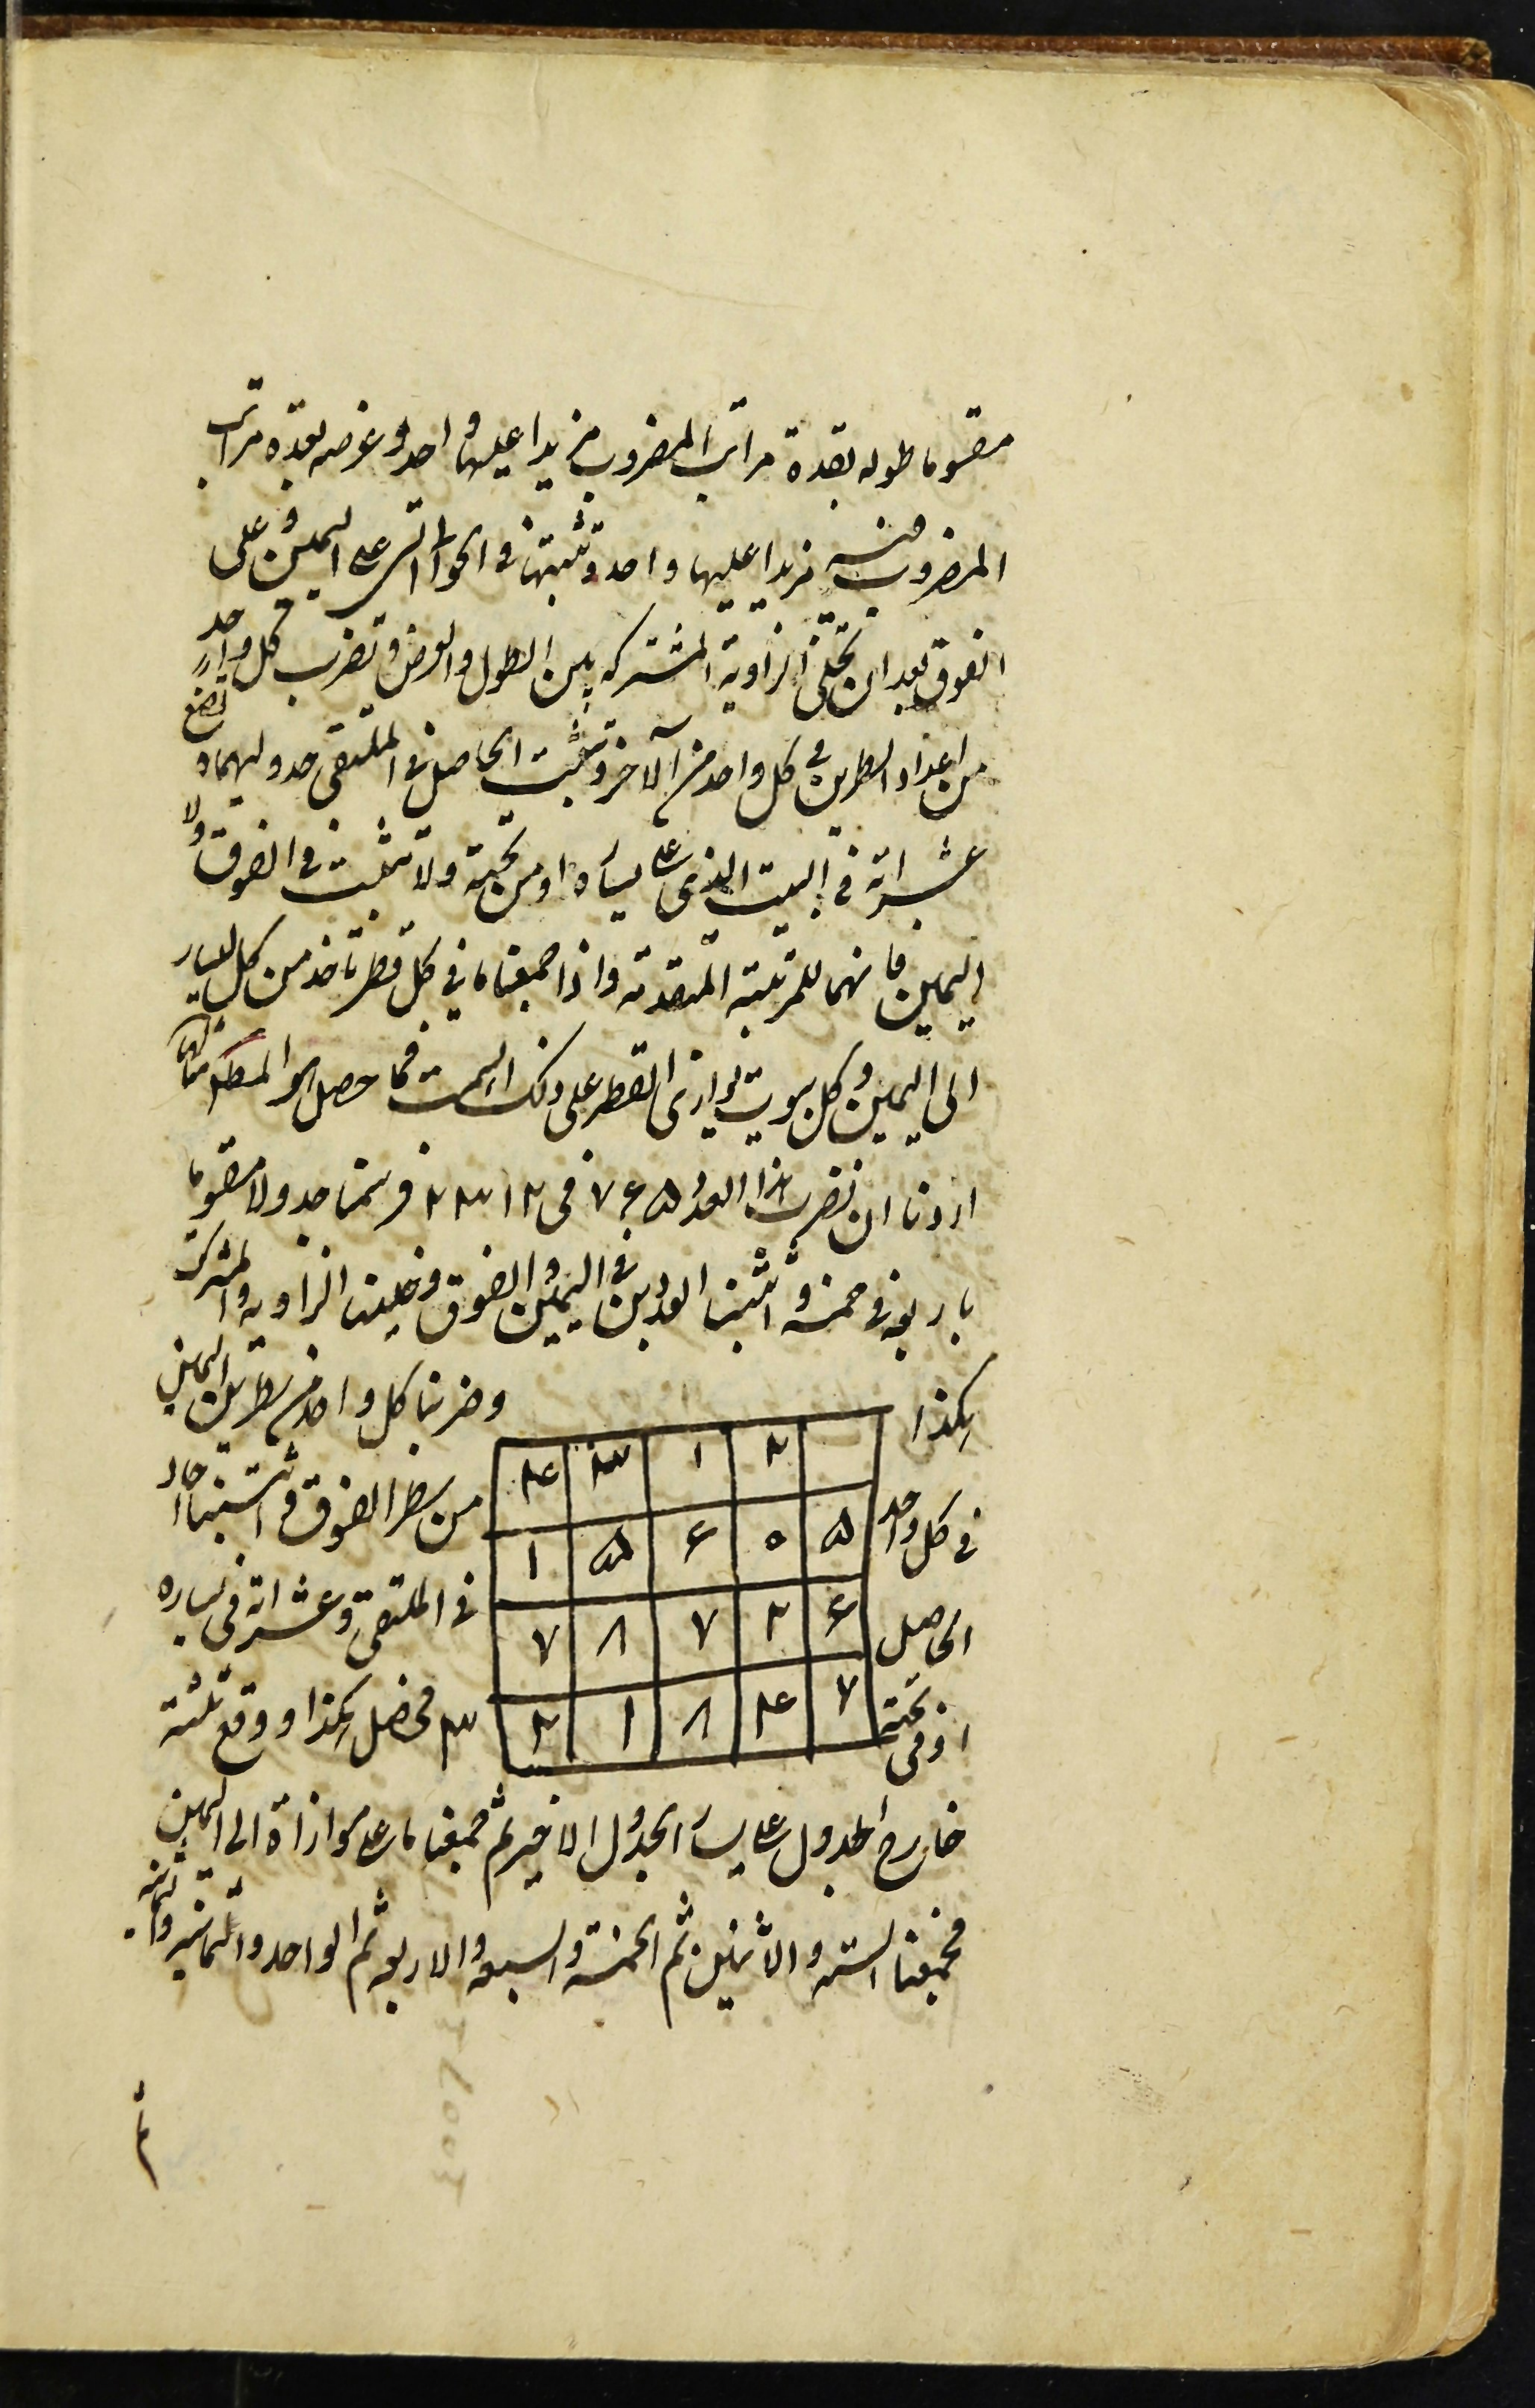 مقسوما طوله بعدة مراتب المضروب مزيدا عليها واحد وعرضه بعدة مراتب
المضروب فيه مزيدا عليها واحد وتثبتها في على اليمين و على
الفوق بعد ان تخلى الزاوية المشتركه بين الطول والعرض وتضرب كل واحد
من اعداد السطرين في كل واحد من الآخر وتثبت الحاصل في الملتقى جدوليهما و تضع
عشراته في البيت الذي على يساره او من تحته ولا تثبت في الفوق ولا
اليمين فانهما للمرتبة المتقدمة واذا جمعنا ما في كل قطر تاخذ من كل اليسار
الى اليمين وكل بيوت يوازى القطر على ذلك السمت فما حصل هو المطلوب مثاله
اردنا ان نضرب هذا العدد ٧۶۵ في ۴۳۱۲ فرسمنا جدولا مقسوما
باربعة في خمسة واثبتنا العددين في اليمين والفوق وخلينا الزاوية المشتركة
هكذا
وضربنا كل واحد من سطر اليمين
في كل واحد
من سطر الفوق واثبتنا احاد
الحاصل
في الملتقى وعشراته في يساره
او في تحته
۳ فحصل هكذا ووقع ثلثة
۴ ۳ ۱ ۲
۱ ۵ ۶ ۰ ۵
۷ ۸ ۷ ۲ ۶
۲ ۱ ۸ ۴ ۷
خارج الجدول على يسار الجدول الاخير ثم جمعنا ما على موازاة الى اليمين
فجمعنا الستة والاثنين ثم الخمسة والسبعة والاربعة ثم الواحد والثمانية والثمانية
ثم